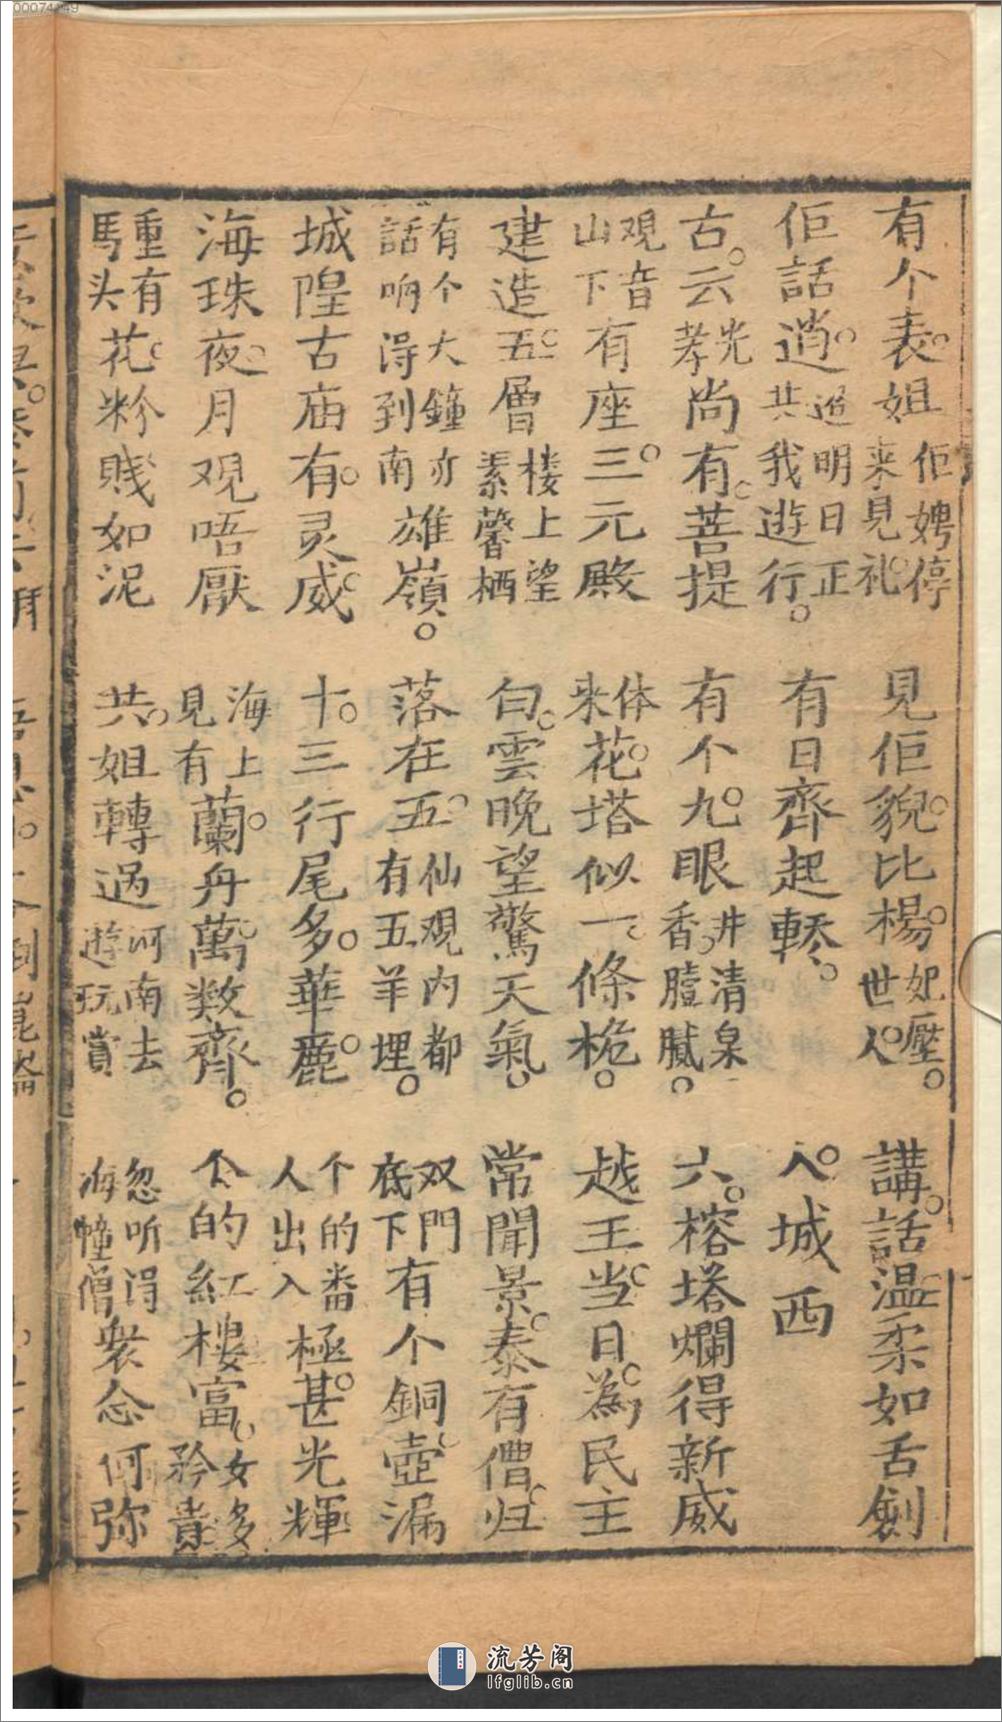 00074449
有个表。姐佢娉停来見礼。見佢貎。比楊。妃壓。世人。講。話温柔如舌劍
佢話道。逍明日正共我遊行。有日齊起轎。入。城西
古。云光孝尚有。菩提有个九。眼井清泉香。臆膱。六。榕塔爛得新威
观音山下有座三。元殿体来花。塔似一條桅。越王当。日。為民主
建造。五層楼上望素馨栖白。雲晚望驚天氣。常聞景。泰有僧。归
有个大鐘亦話响得到南雄嶺。落在五。仙观内都有五羊埋。双門底下有个銅。壺漏
城隍古庙有。灵威。十。三行尾多。華麗。个的番人出入極甚。光輝
海珠夜。月观唔厭海上見有蘭。舟萬。数齊。个的紅樓富。女多矜貴
重有馬头花。粉賎如泥共。姐轉过河南去遊玩賞忽听得海幢僧衆念何弥
流芳阁
lfglib.cn